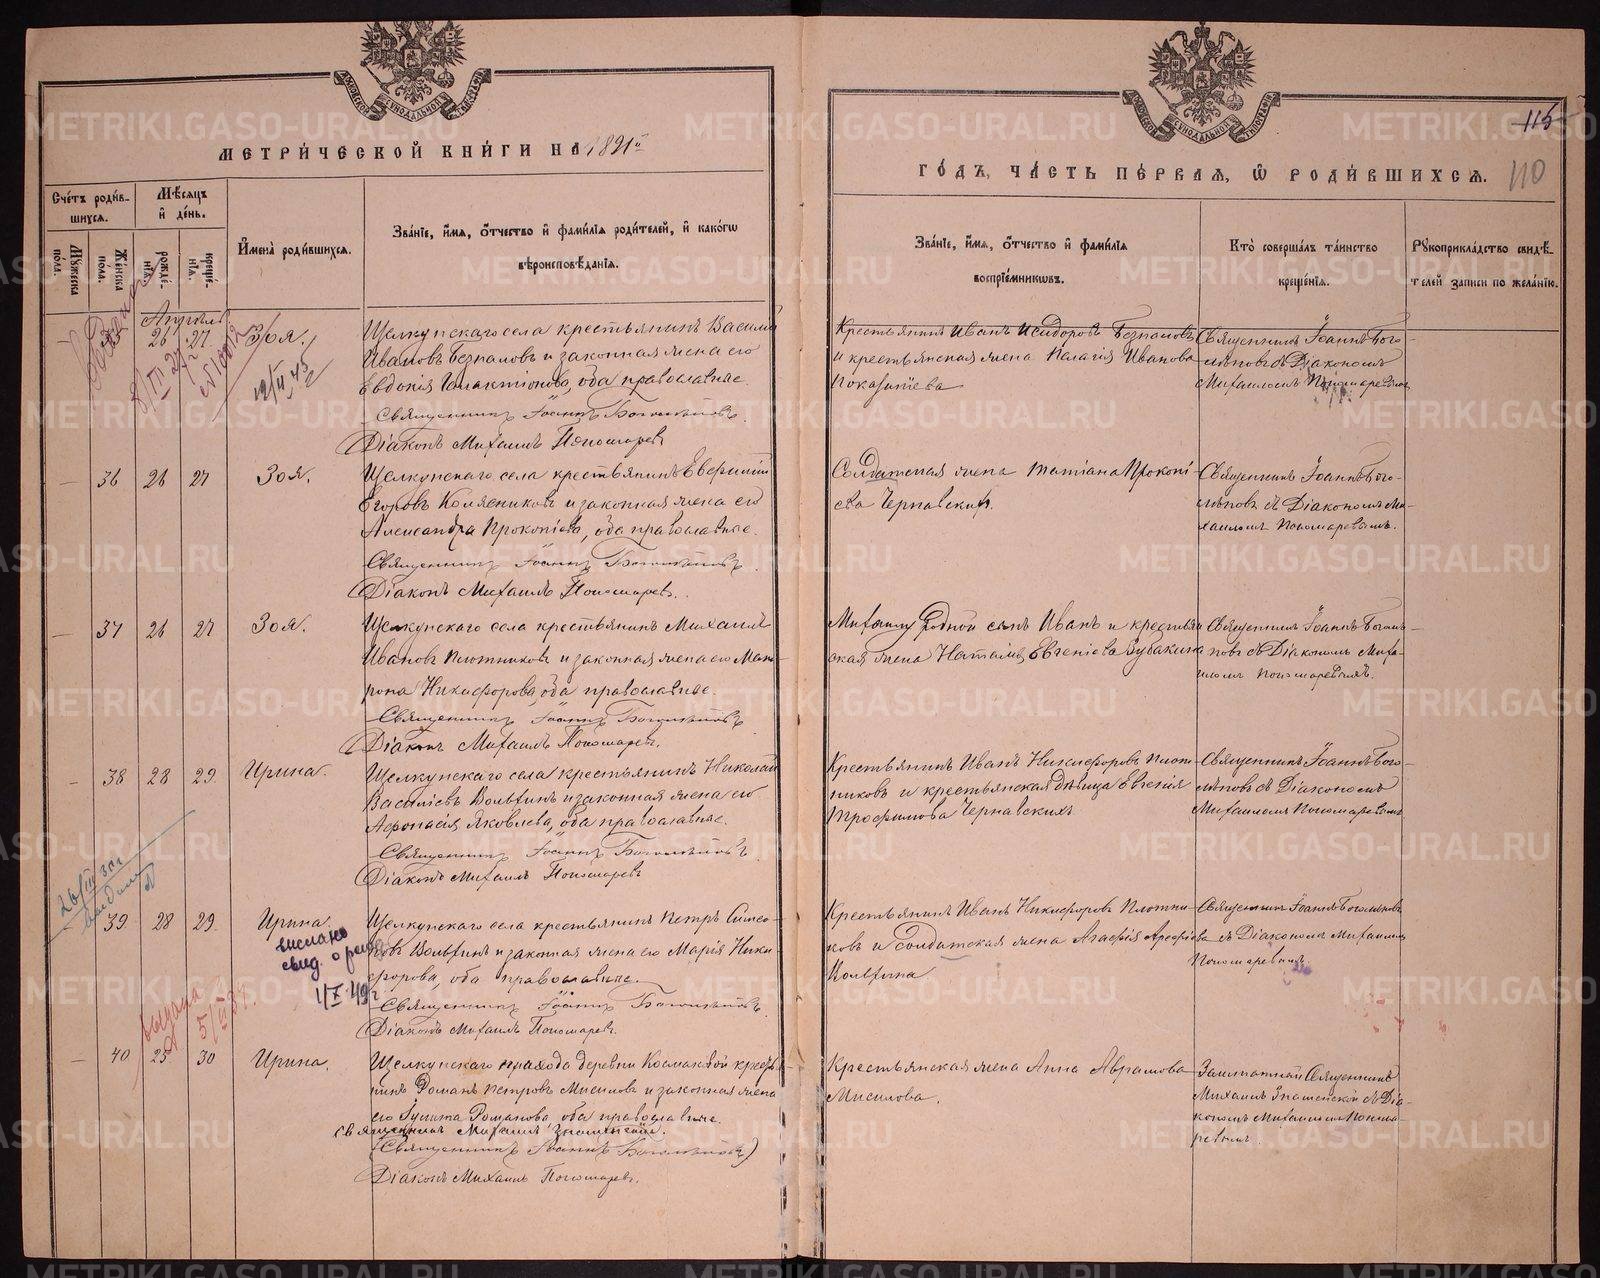 МЕТРИЧЕСКОЙ КНИГИ НА 1891й
ГОДЪ, ЧАСТЬ ПЕРВАЯ, Ѡ РОДИВШИХСЯ.
115
110
Счетъ родив-
шихся.
Мужеска
пола.
Женска
пола.
Мѣсяцъ
и день.
рожде-
нія.
креще-
нія.
Имена родившихся.
Званіе, имя, отчество и фамилія родителей, и какогѡ
вѣроисповѣданія.
Званіе, имя, отчество и фамилія
воспріемниковъ.
Кто совершалъ таинство
крещенія.
Рукоприкладство свидѣ-
телей записи по желанію.
Апрѣль
26 27 Зоя.
Щелкунскаго села крестьянинъ Василій
Ивановъ Безпаловъ и законная жена его
Евдокія Галактіонова, оба православные.
Священникъ Іоаннъ Боголѣповъ
Діаконъ Михаилъ Пономаревъ
Крестьянинъ Иванъ Исидоровъ Безпаловъ
и крестьянская жена Пелагія Иванова
Священникъ Іоаннъ Бого-
лѣповъ съ Діакономъ
Михаиломъ Пономаревымъ
— 36 26 27 Зоя.
Щелкунскаго села крестьянинъ
Егоровъ и законная жена его
Александра Прокопіева, оба православные.
Священникъ Іоаннъ Боголѣповъ
Діаконъ Михаилъ Пономаревъ.
Солдатская жена Татіана Прокопі-
ева Чернавскихъ.
Священникъ Іоаннъ Бого-
лѣповъ съ Діакономъ Ми-
хаиломъ Пономаревымъ.
— 37 26 27 Зоя.
Щелкунскаго села крестьянинъ Михаилъ
Ивановъ Плотниковъ и законная жена его Мат-
рона Никифорова, оба православные.
Священникъ Іоаннъ Боголѣповъ
Діаконъ Михаилъ Пономаревъ.
родной сынъ Иванъ и крестьян-
ская жена Наталія Евгеніева
Священникъ Іоаннъ Боголѣ-
повъ съ Діакономъ Миха-
иломъ Пономаревымъ.
— 38 28 29. Ирина.
Щелкунскаго села крестьянинъ Николай
Василіевъ Вольхинъ и законная жена его
Афонасія Яковлева, оба православные.
Священникъ Іоаннъ Боголѣповъ
Діаконъ Михаилъ Пономаревъ
Крестьянинъ Иванъ Никифоровъ Плот-
никовъ и крестьянская дѣвица Евгенія
Трофимова Чернавскихъ
Священникъ Іоаннъ Бого-
лѣповъ съ Діакономъ
Михаиломъ Пономаревымъ
39 28 29. Ирина.
выслано
свид. о рожд
1/X-49г
Щелкунскаго села крестьянинъ Петръ Симео-
новъ Вольхинъ и законная жена его Марія Ники-
форова, оба православные.
Священникъ Іоаннъ Боголѣповъ
Діаконъ Михаилъ Пономаревъ.
Крестьянинъ Иванъ Никифоровъ Плотни-
ковъ и солдатская жена Агафія
Вольхина
Священникъ Іоаннъ Боголѣповъ
съ Діакономъ Михаиломъ
Пономаревымъ
— 40 25 30 Ирина.
Щелкунскаго прихода деревни Космаковой кресть-
нинъ Романъ Петровъ Мисиловъ и законная жена
его Романова оба православные.
священникъ Михаилъ Знаменскій.
(Священникъ Іоаннъ Боголѣповъ)
Діаконъ Михаилъ Пономаревъ.
Крестьянская жена Анна Аврамова
Мисилова.
Заштатный Священникъ
Михаилъ Знаменскій съ Діа-
кономъ Михаиломъ Понома-
ревымъ.
METRIKI.GASO-URAL.RU